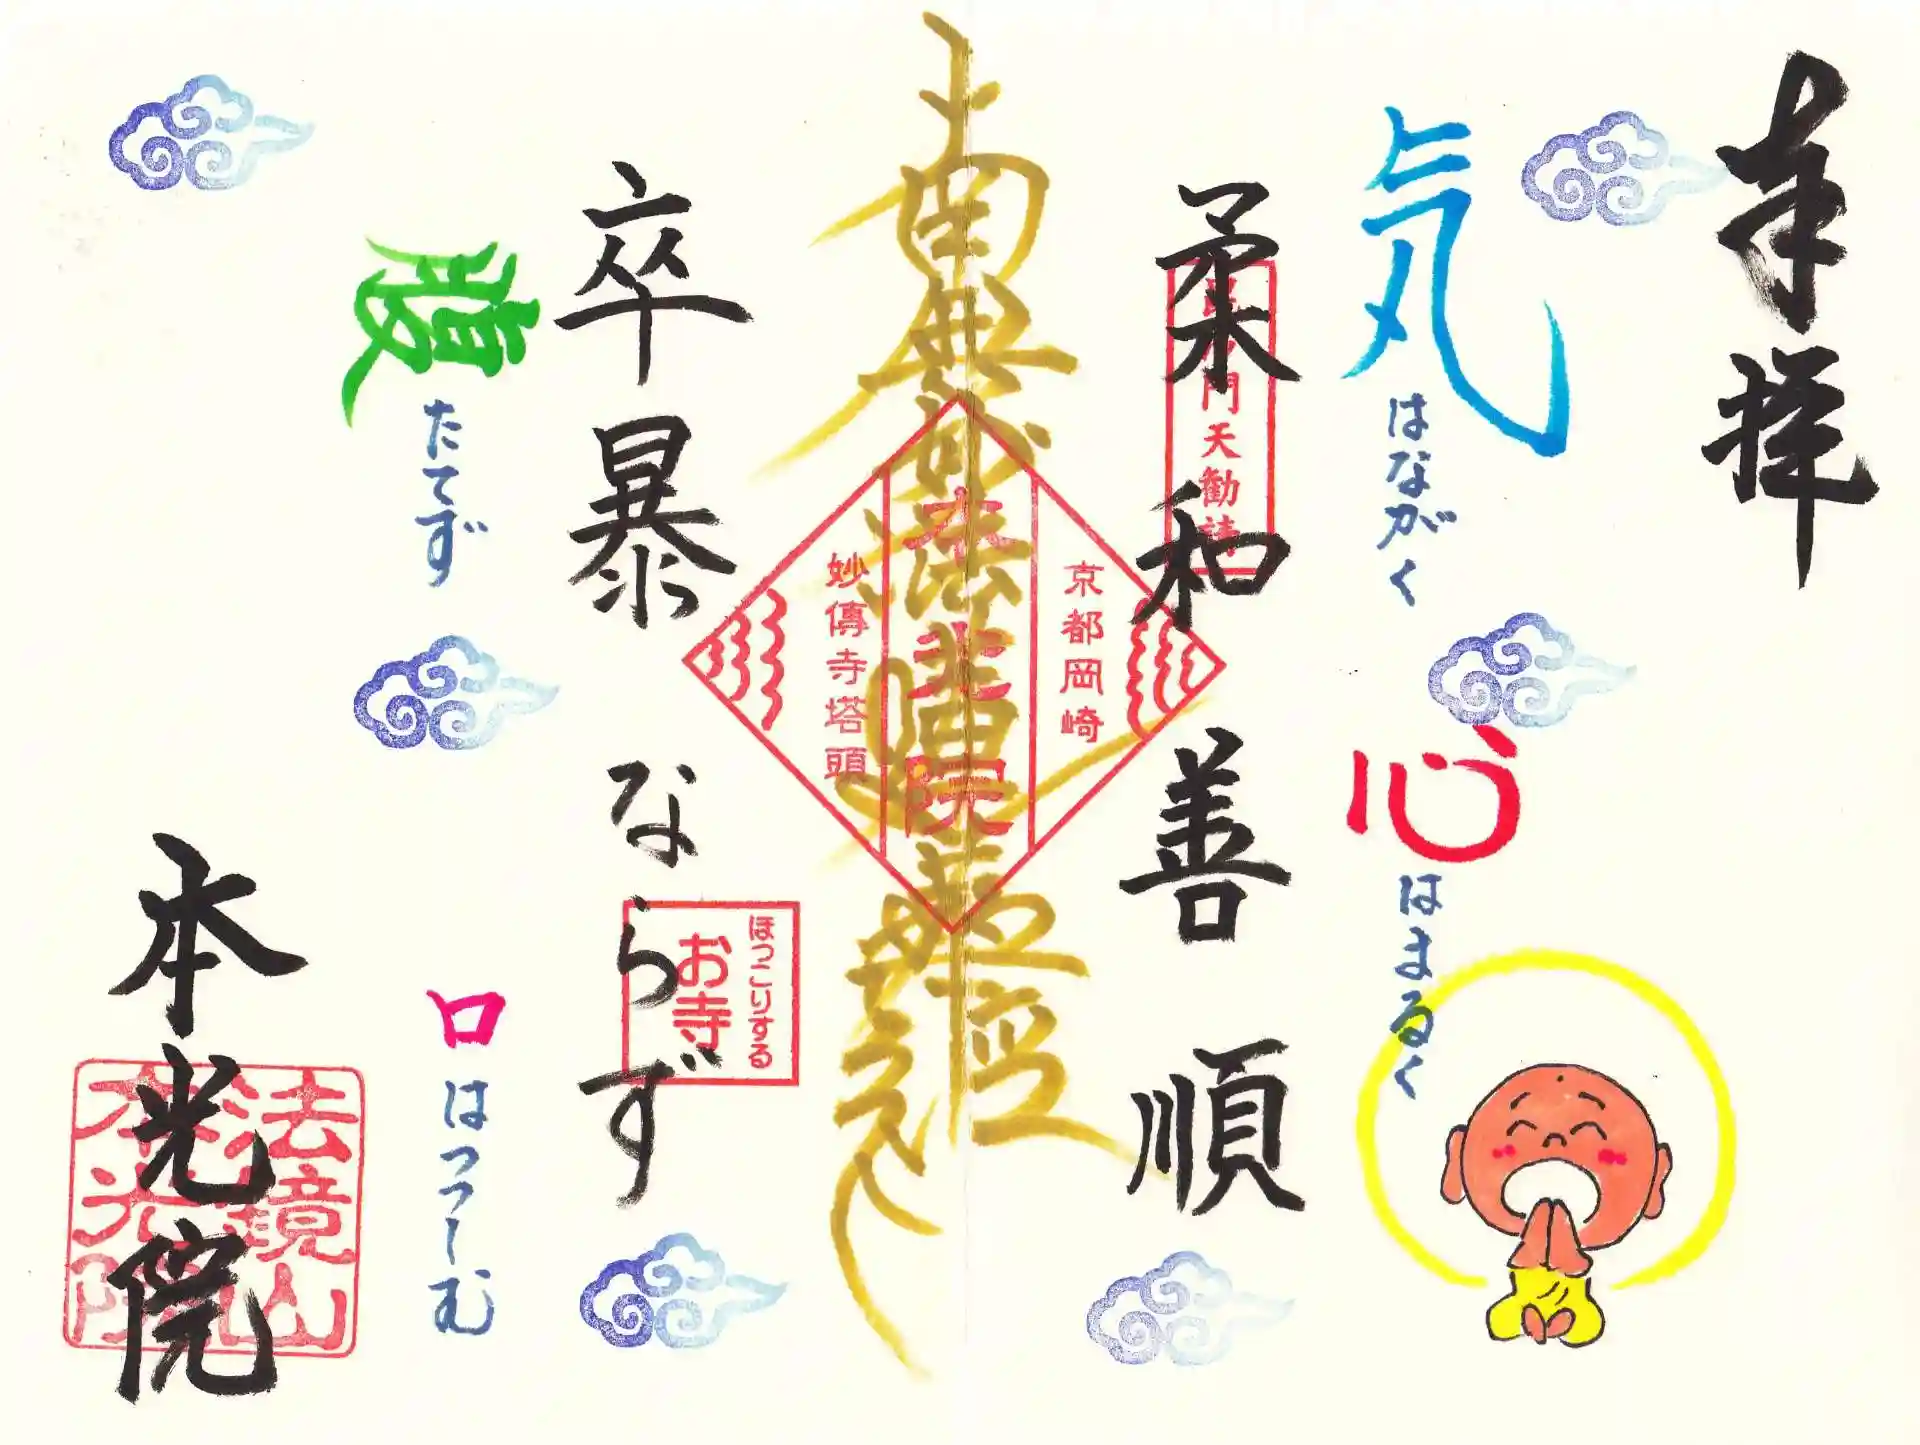 奉拝
気はながく
心はまるく
柔和善順
門天勧請
南無妙法蓮華経
京都岡崎
本光院
妙傳寺塔頭
卒暴ならず
ほっこりする
お寺
腹たてず
口はつつしむ
本光院
法鏡山
本光院